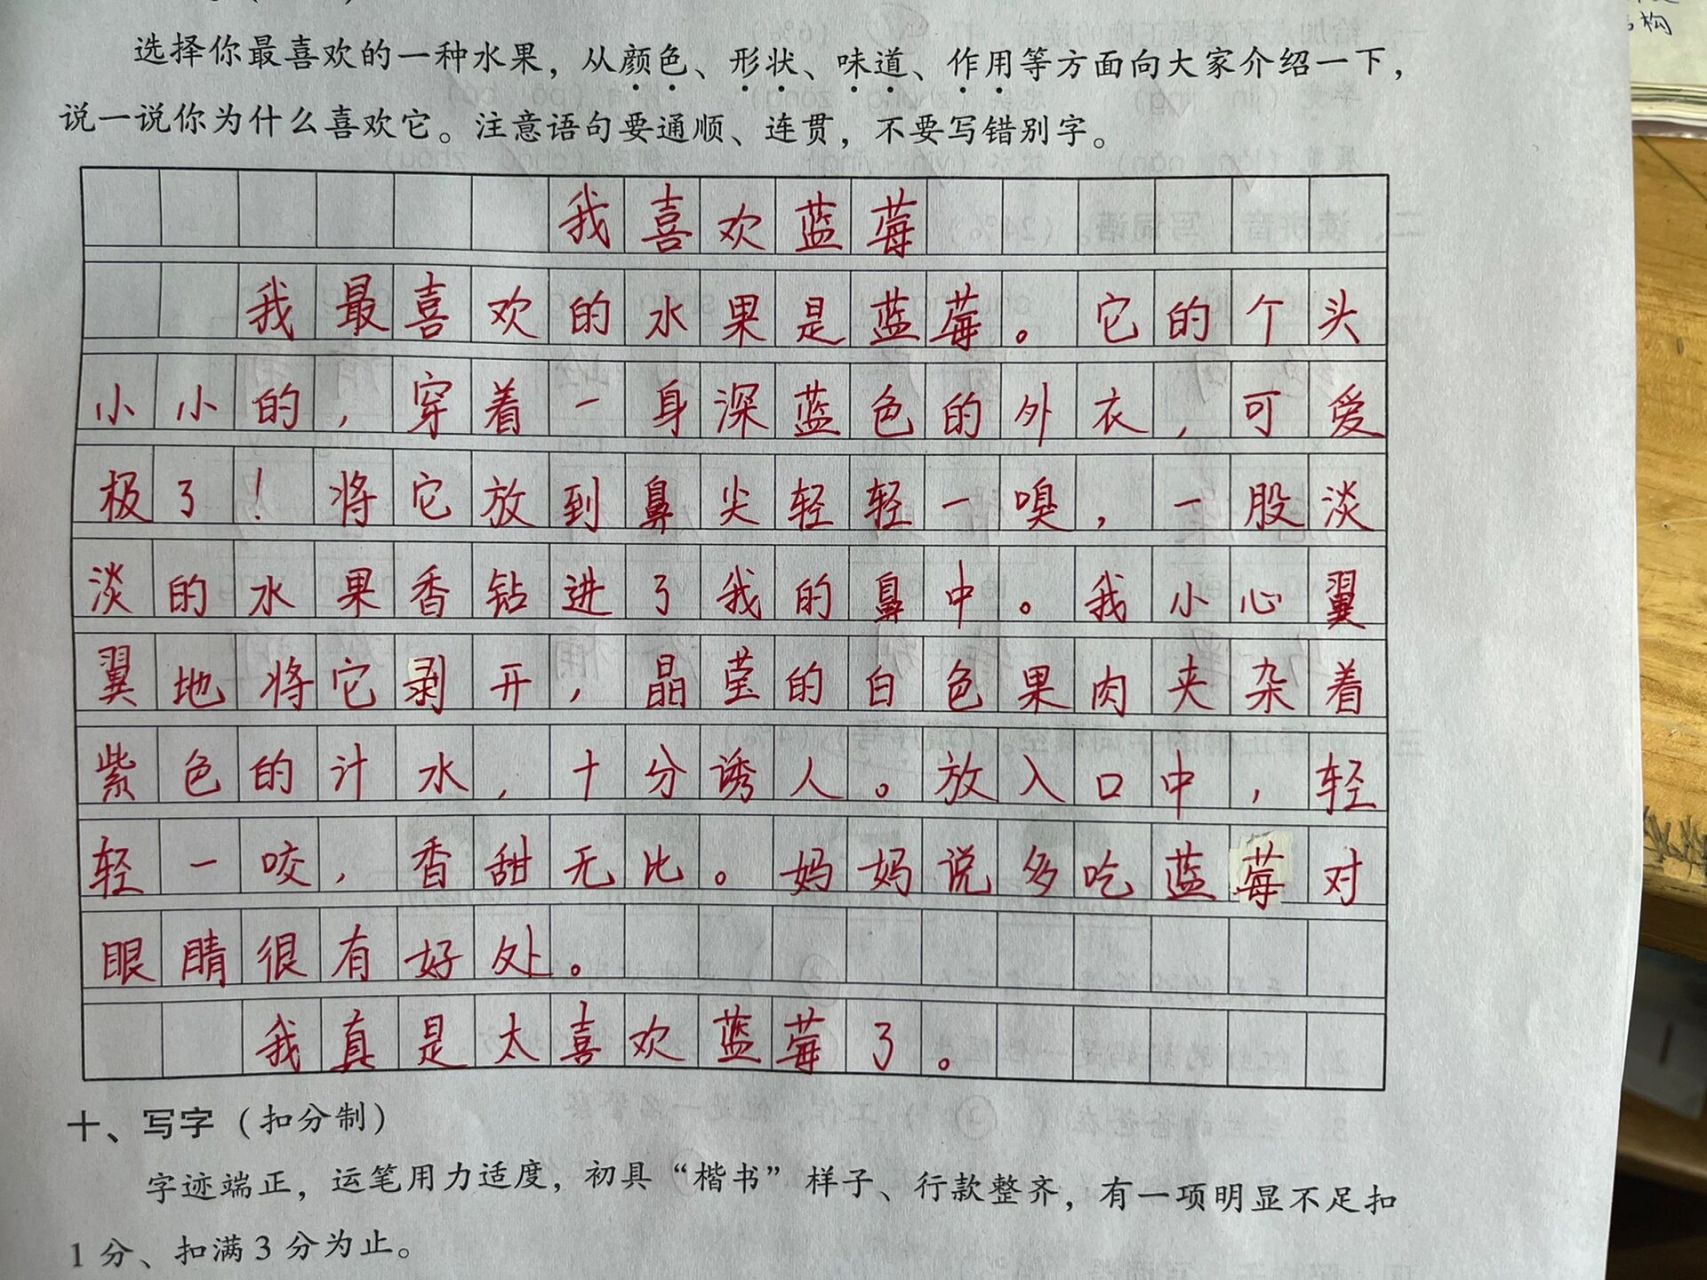 选择你最喜欢的一种水果，从颜色、形状、味道、作用等方面向大家介绍一下，
说一说你为什么喜欢它。注意语句要通顺、连贯，不要写错别字。
我喜欢蓝莓
我最喜欢的水果是蓝莓。它的个头
小小的，穿着一身深蓝色的外衣，可爱
极了！将它放到鼻尖轻轻一嗅，一股淡
淡的水果香钻进了我的鼻中。我小心翼
翼地将它剥开，晶莹的白色果肉夹杂着
紫色的汁水，十分诱人。放入口中，轻
轻一咬，香甜无比。妈妈说多吃蓝莓对
眼睛很有好处。
我真是太喜欢蓝莓了。
十、写字（扣分制）
字迹端正，运笔用力适度，初具“楷书”样子、行款整齐，有一项明显不足扣
1分、扣满3分为止。